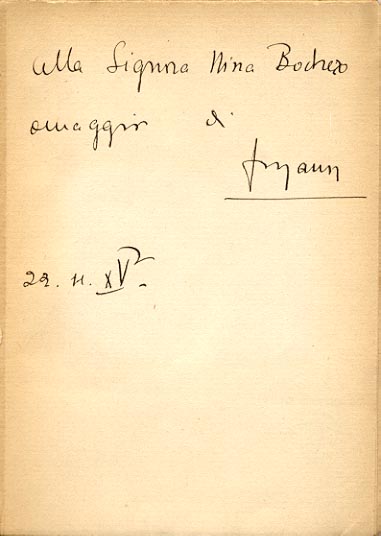 alla Signora Nina
omaggio di
22. 11. XV